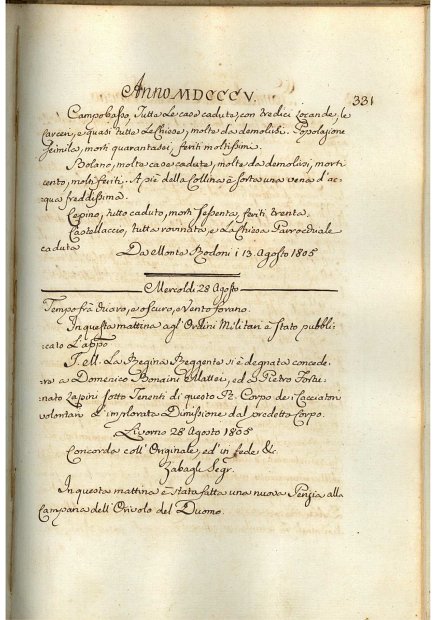 Anno MDCCCV.
331
Campobasso Tutte le case cadute, con tredici Locande, le
carceri, e quasi tutte le Chiese, molte da demolirsi. Popolazione
seimila, morti quarantasei, feriti moltissimi.
Bojano, molte case cadute, molte da demolirsi, morti
cento, molti feriti. A piè della Collina è sorta una vena d'ac-
qua freddissima.
Cepino, tutto caduto, morti Sessanta, feriti trenta.
Castellaccio, tutto rovinato, e la Chiesa Parrocchiale
caduta
Da Monte Rodoni i 13 Agosto 1805
Mercoldì 28 Agosto
Tempo frà chiaro, e oscuro, e Vento sovrano.
In questa mattina agl' Ordini Militari è Stato pubbli-
cato L'appo
S. M. La Regina Reggente si è degnata concede-
re a Domenico Bonaini Mattei, ed a Pietro Fortu-
nato Lapini Sotto Tenenti di questo R. Corpo dei Cacciatori
volontari L'implorata Dimissione dal predetto Corpo.
Livorno 28 Agosto 1805
Concorda coll' Originale, ed in fede &c
Zabagli Segr.
In questa mattina è Stata fatta una nuova Penzia alla
Campana dell' Orivolo del Duomo.